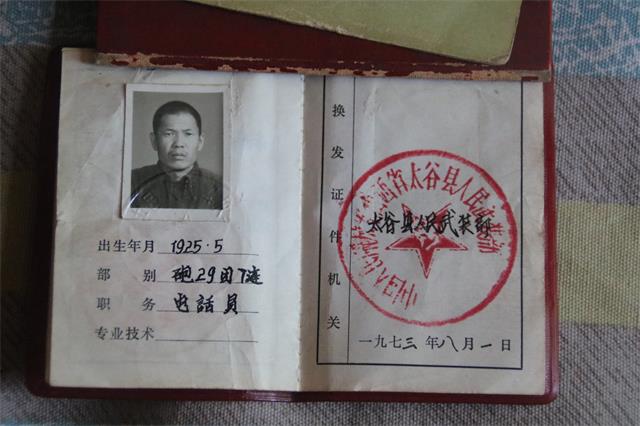 出生年月 1925.5
部别 砲29团7连
职务 电話员
专业技术
换发证件机关
太谷县人民武装部
一九七三年八月一日